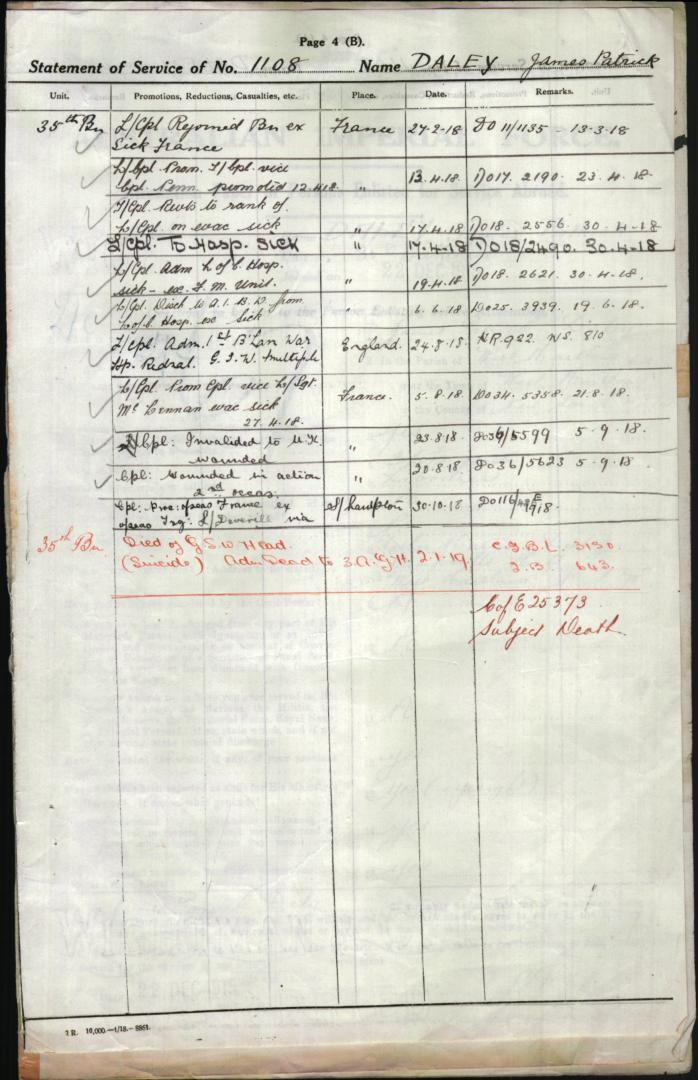 Page 4 (B).
Statement of Service of No. 1108 Name DALEY James Patrick
Unit. Promotions, Reductions, Casualties, etc. Place. Date. Remarks.
35th Bn L/Cpl Rejoined Bn ex France 27-2-18 DO 11/1135 - 13-3-18
Sick France
L/Cpl. Prom. T/Cpl. vice
Cpl. Penn promoted 12.4.18 " 13.4.18 DO17. 2190. 23.4.18.
T/Cpl. Revts to rank of
L/Cpl on evac sick " 17.4.18 DO18. 2556. 30-4-18
L/Cpl. To Hosp. Sick " 17-4-18 DO18/2490. 30-4-18
L/Cpl. Adm L of C Hosp.
sick - ex. F.M. Unit. " 19.4.18 DO18. 2621. 30-4-18.
L/Cpl. Disch to A.I.B.D. from " 6.6.18 DO25. 3939. 19.6.18.
L of C. Hosp. ex Sick
L/Cpl. Adm. 1st B'Lan War England. 24.8.18 HR922 WS. 810
Hp. G.S.W. Multiple
L/Cpl Prom Cpl vice L/Sgt. France. 5.8.18 DO34. 5358. 21.8.18.
McLennan evac sick
27.4.18.
Cpl: Invalided to U.K. " 23.8.18 DO36/5599 5-9-18.
wounded
Cpl: Wounded in action " 20.8.18 DO36/5623 5-9-18.
2nd occas.
Cpl: Proc: o/seas France ex S/hampton 30.10.18 DO116/
o/seas Trg: L/Deverill via
35th Bn Died of G.S.W. Head.
(Suicide) Adm Dead to 3.A.G.H. 2.1.19. 3130
643.
C of E 25373
Subject Death
2 R. 10,000.—1/18.—8861.